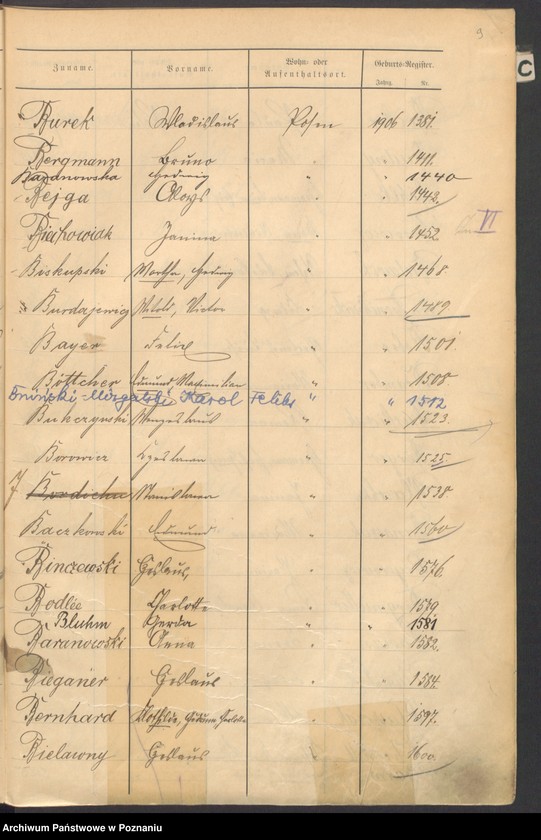 9
C
Zuname. Vorname. Wohn- oder Aufenthaltsort. Geburts-Register.
Jahrg. Nr.
Burek Wladislaus Posen 1906 1381.
Bergmann Bruno " " 1411.
Baganowska Hedwig " " 1440
Bejga Aloys " " 1442.
Biechowiak Janina " " 1452
VI
Biskupski Martha, Hedwig " " 1468
Burdajewicz Witold, Victor " " 1489
Bayer Felix " " 1501
Böttcher Edmund, Maximilian " " 1508.
Karol Feliks " " 1512
Bukczynski " " 1523.
Borowicz " " 1525.
Stanislawa " " 1538
Baczkowski Edmund " " 1560
Binczewski Ceslaus, " " 1576.
Bodlée Charlotte " " 1579
Bluhm Gerda " " 1581
Baranowski Anna " " 1582.
Bieganer Ceslaus " " 1584.
Bernhard Mathilde, " " 1597.
Bielawny Ceslaus " " 1600.
Archiwum Państwowe w Poznaniu